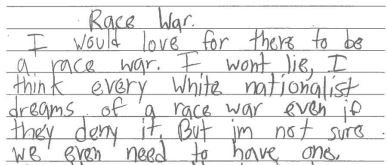 Race War.
I would love for there to be
a race war. I wont lie, I
think every White nationalist
dreams of a race war even if
they deny it. But im not sure
we even need to have one.